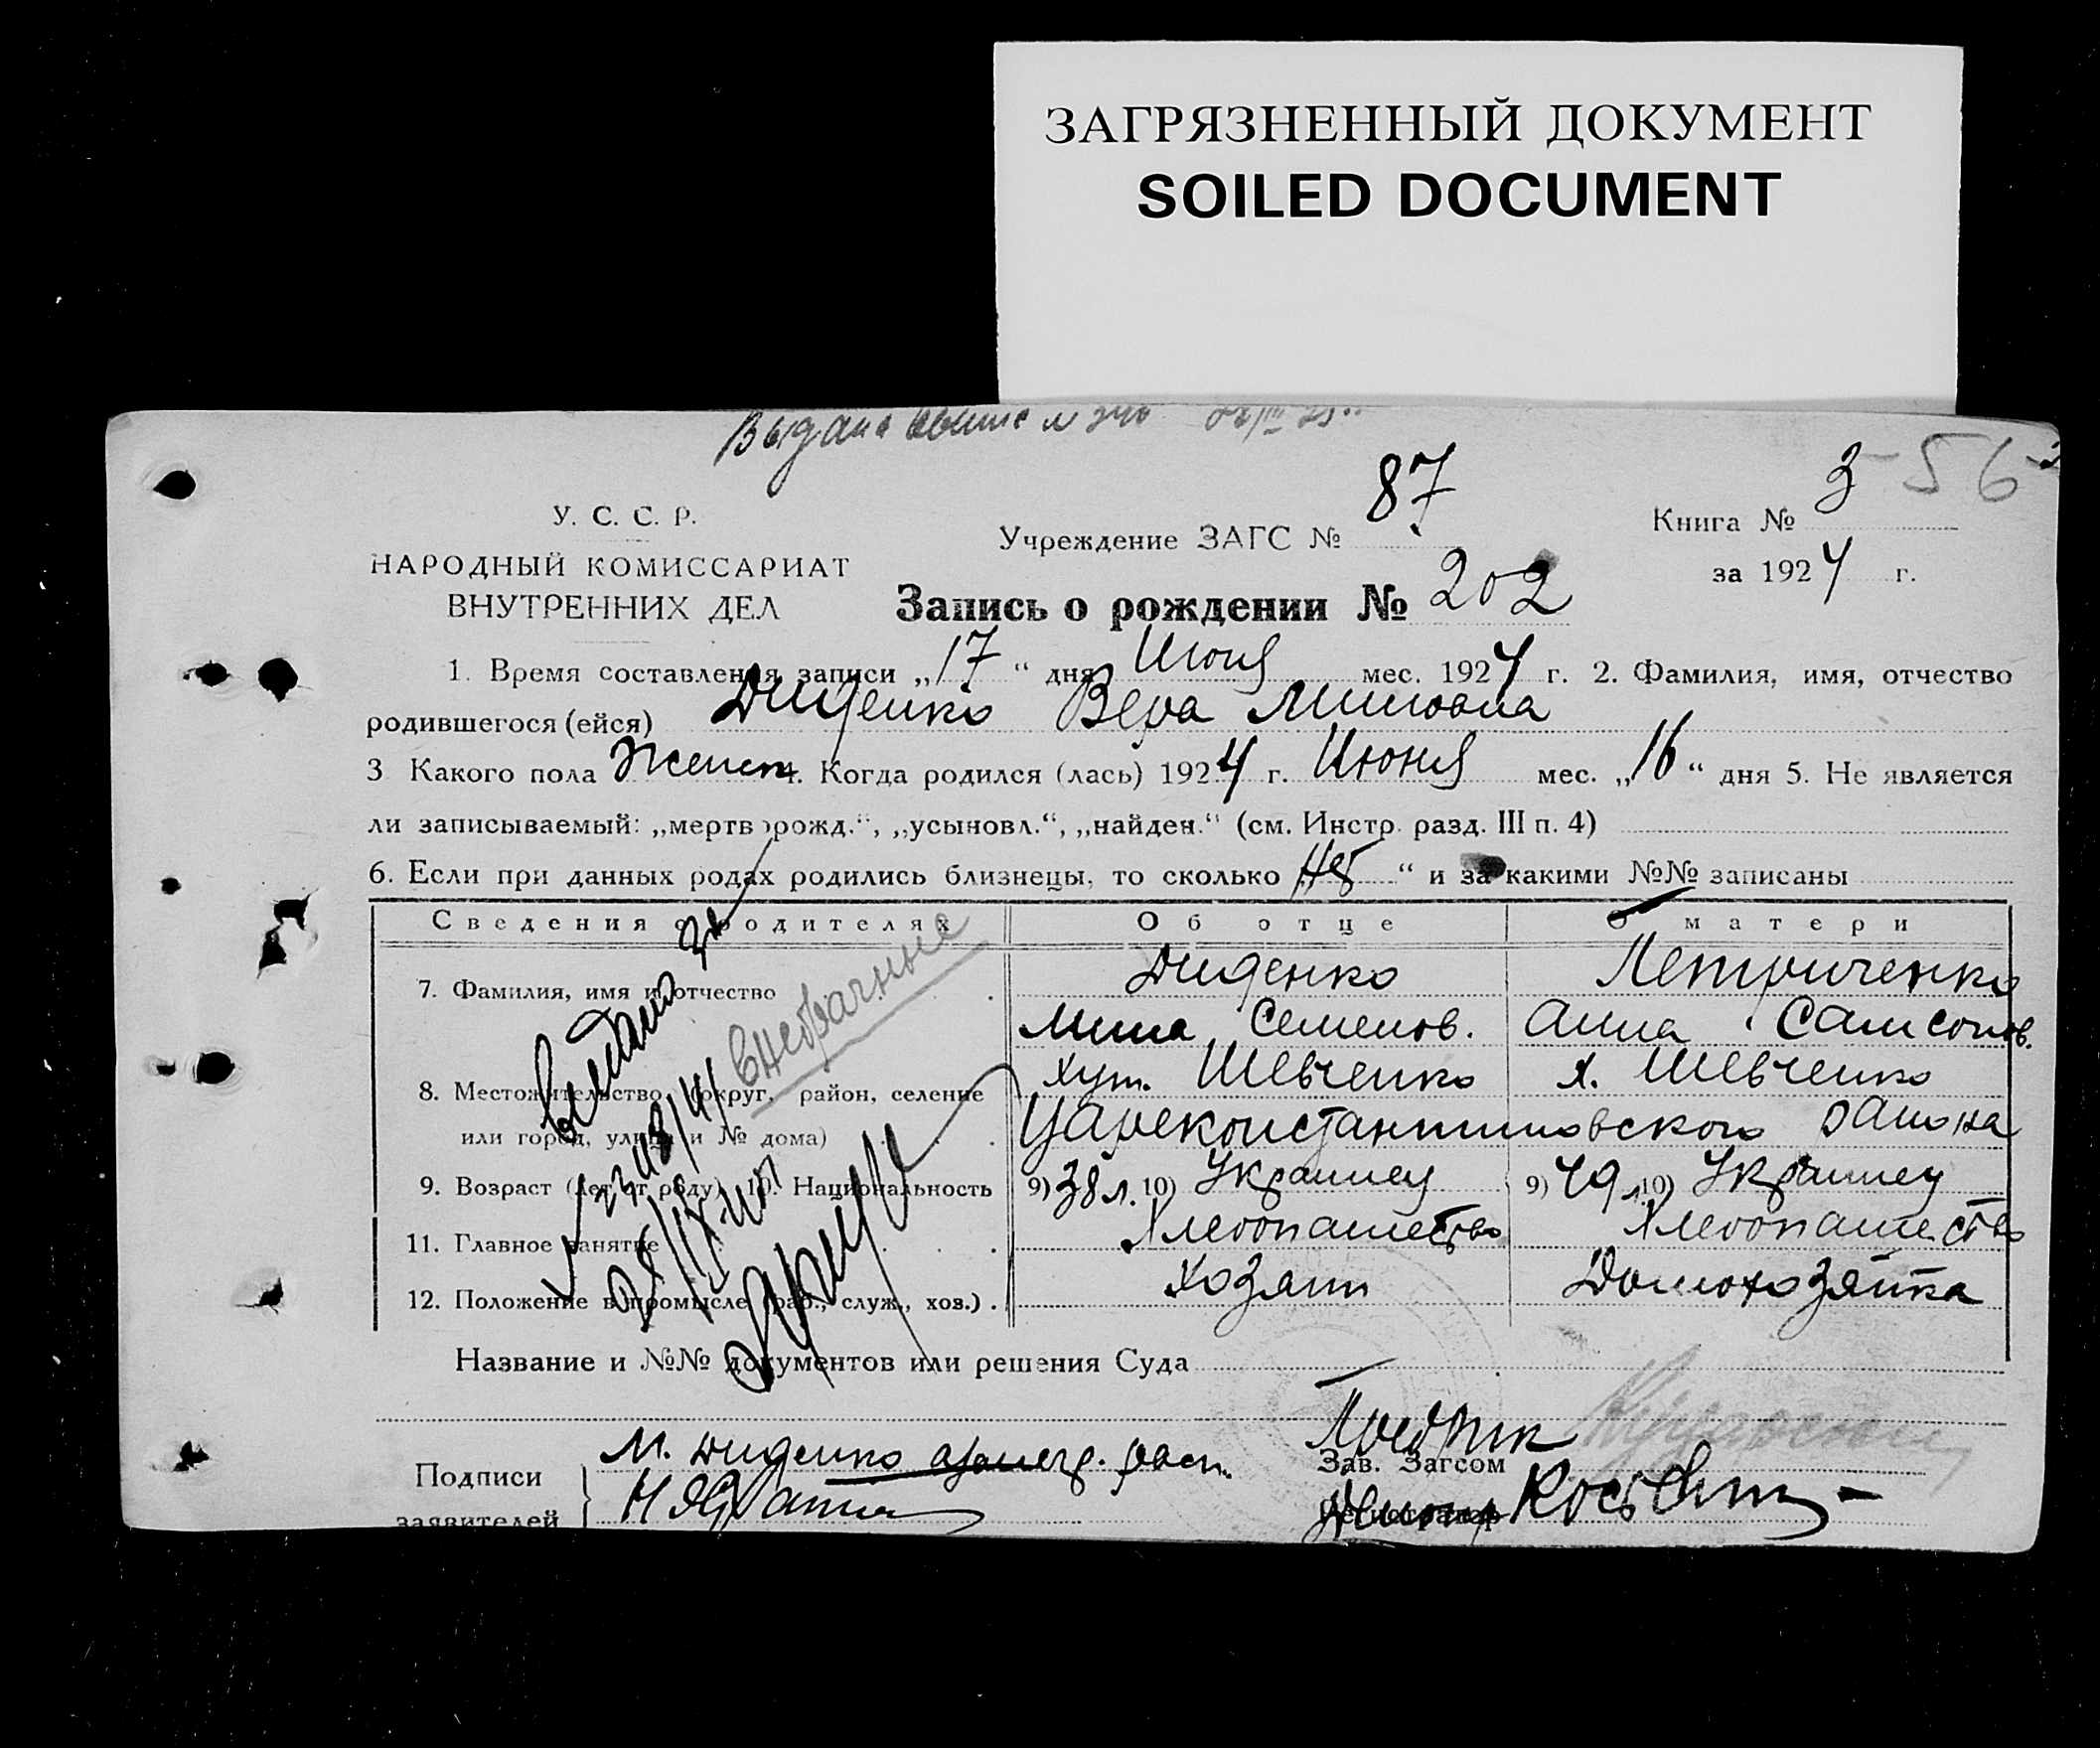 ЗАГРЯЗНЕННЫЙ ДОКУМЕНТ
SOILED DOCUMENT
Выдана
3 56
У. С. С. Р.
НАРОДНЫЙ КОМИССАРИАТ
ВНУТРЕННИХ ДЕЛ
Учреждение ЗАГС № 87
Книга № 3
за 1924 г.
Запись о рождении № 202
1. Время составления записи „17“ дня Июня мес. 1924 г. 2. Фамилия, имя, отчество
родившегося (ейся) Диденко Вера Мин
3 Какого пола женск. Когда родился (лась) 1924 г. Июня мес. „16“ дня 5. Не является
ли записываемый: „мертворожд.“, „усыновл.“, „найден.“ (см. Инстр. разд. III п. 4)
6. Если при данных родах родились близнецы, то сколько „ “ и за какими №№ записаны
Сведения о родителях Об отце О матери
7. Фамилия, имя и отчество Диденко Петриченко
Мина Семенов. Анна Самсонов.
8. Местожительство (округ, район, селение хут. Шевченко х. Шевченко
или город, улица и № дома) Цареконстантиновского района
9. Возраст (лет от роду) 10. Национальность 9) 38 л. 10) Украинец 9) 49 л. 10) Украинец
11. Главное занятие Хлебопашество Хлебопашество
12. Положение в промысле (раб., служ., хоз.) Хозяин Домохозяйка
внебрачные
Название и №№ документов или решения Суда
Подписи М. Диденко
заявителей
Зав. Загсом